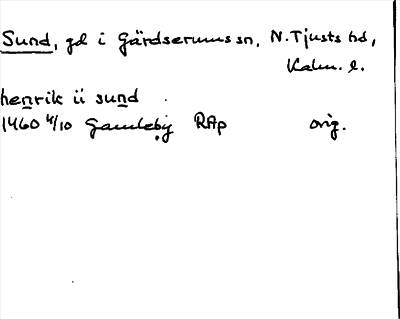 Sund, gd i Gärdserums sn, N. Tjusts hd,
Kalm. l.
henrik ii sund
1460 4/10 Gamleby RAp orig.